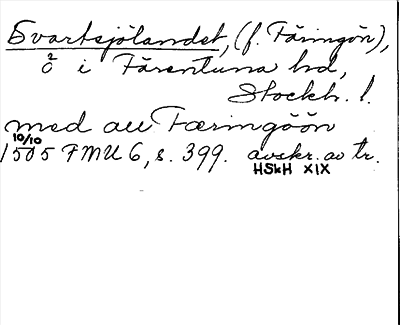 Svartsjölandet, (f. Färingön),
ö i Färentuna hd,
Stockh. l.
med all Færingöön
10/10
1505 FMU 6, s. 399. avskr. av tr.
HSkH XIX